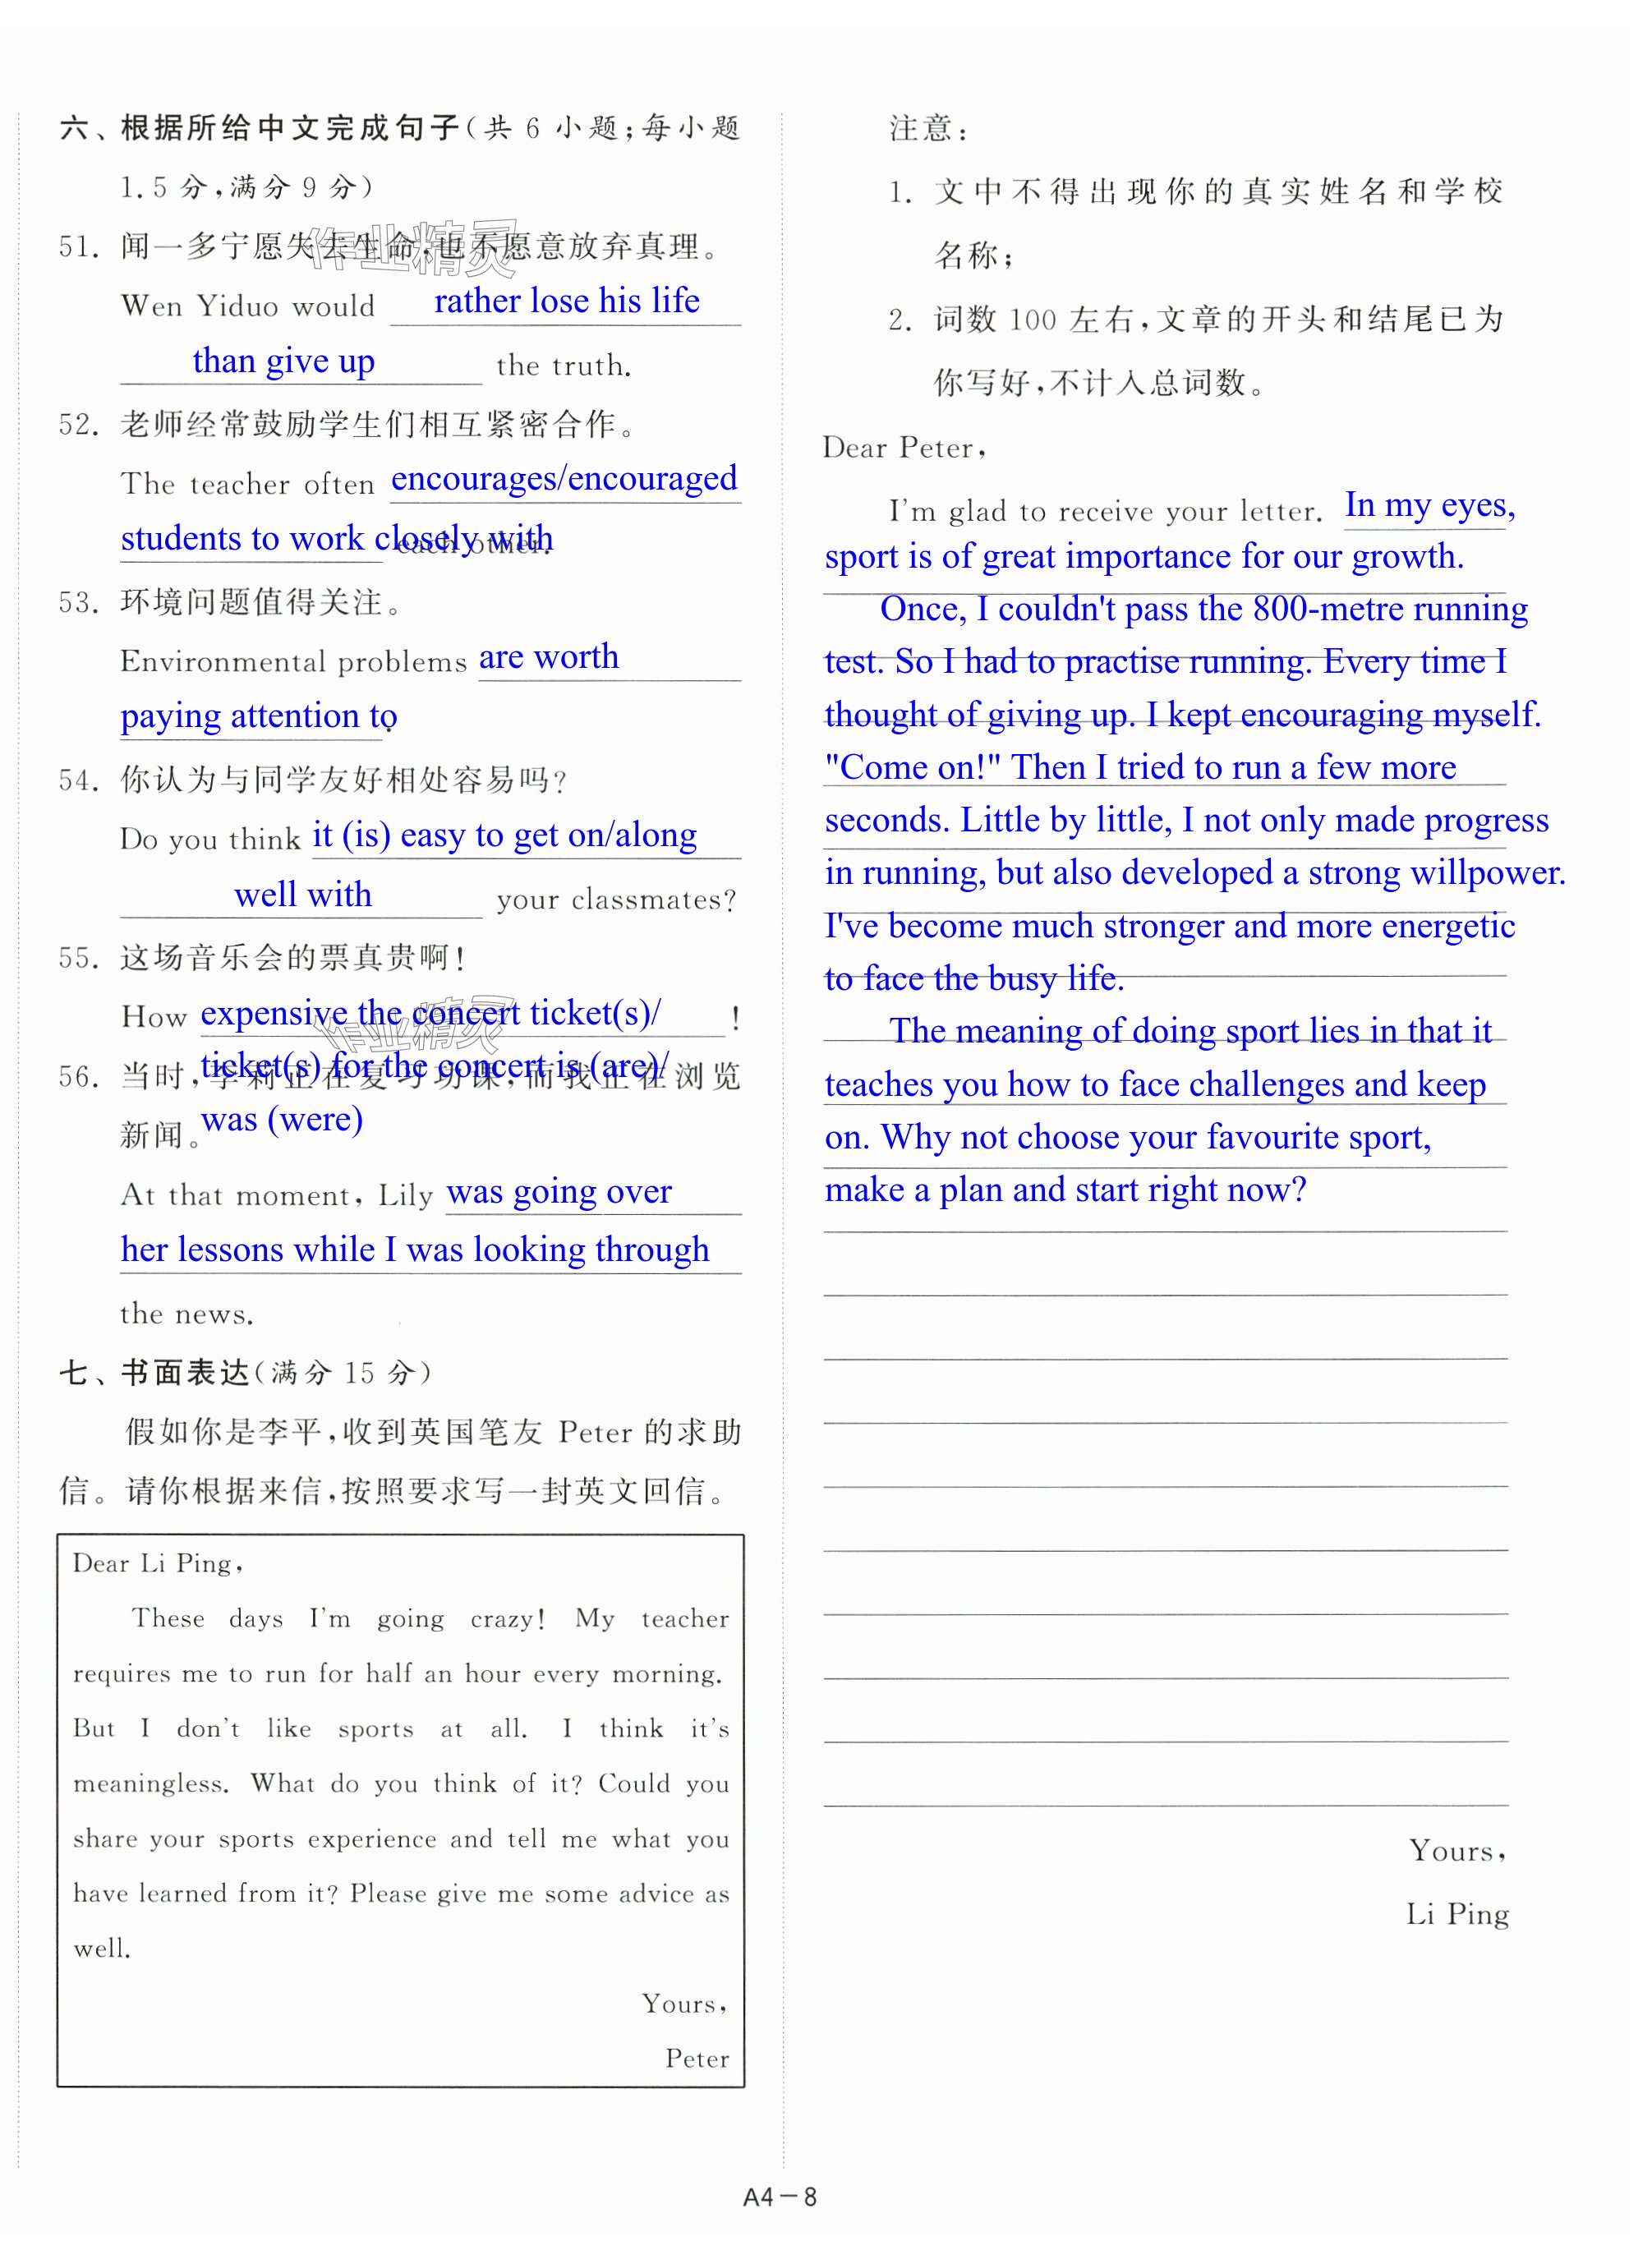 六、根据所给中文完成句子(共 6 小题;每小题
1.5 分,满分 9 分)
51. 闻一多宁愿失去生命,也不愿意放弃真理。
Wen Yiduo would rather lose his life
than give up the truth.
52. 老师经常鼓励学生们相互紧密合作。
The teacher often encourages/encouraged
students to work closely with each other.
53. 环境问题值得关注。
Environmental problems are worth
paying attention to.
54. 你认为与同学友好相处容易吗?
Do you think it (is) easy to get on/along
well with your classmates?
55. 这场音乐会的票真贵啊!
How expensive the concert ticket(s)/ !
ticket(s) for the concert is (are)/
was (were)
56. 当时,李莉正在复习功课,而我正在浏览
新闻。
At that moment, Lily was going over
her lessons while I was looking through
the news.
七、书面表达(满分 15 分)
假如你是李平,收到英国笔友 Peter 的求助
信。请你根据来信,按照要求写一封英文回信。
Dear Li Ping,
These days I'm going crazy! My teacher
requires me to run for half an hour every morning.
But I don't like sports at all. I think it's
meaningless. What do you think of it? Could you
share your sports experience and tell me what you
have learned from it? Please give me some advice as
well.
Yours,
Peter
注意:
1. 文中不得出现你的真实姓名和学校
名称;
2. 词数 100 左右,文章的开头和结尾已为
你写好,不计入总词数。
Dear Peter,
I'm glad to receive your letter. In my eyes,
sport is of great importance for our growth.
Once, I couldn't pass the 800-metre running
test. So I had to practise running. Every time I
thought of giving up. I kept encouraging myself.
"Come on!" Then I tried to run a few more
seconds. Little by little, I not only made progress
in running, but also developed a strong willpower.
I've become much stronger and more energetic
to face the busy life.
The meaning of doing sport lies in that it
teaches you how to face challenges and keep
on. Why not choose your favourite sport,
make a plan and start right now?
Yours,
Li Ping
A4-8
作业精灵
作业精灵